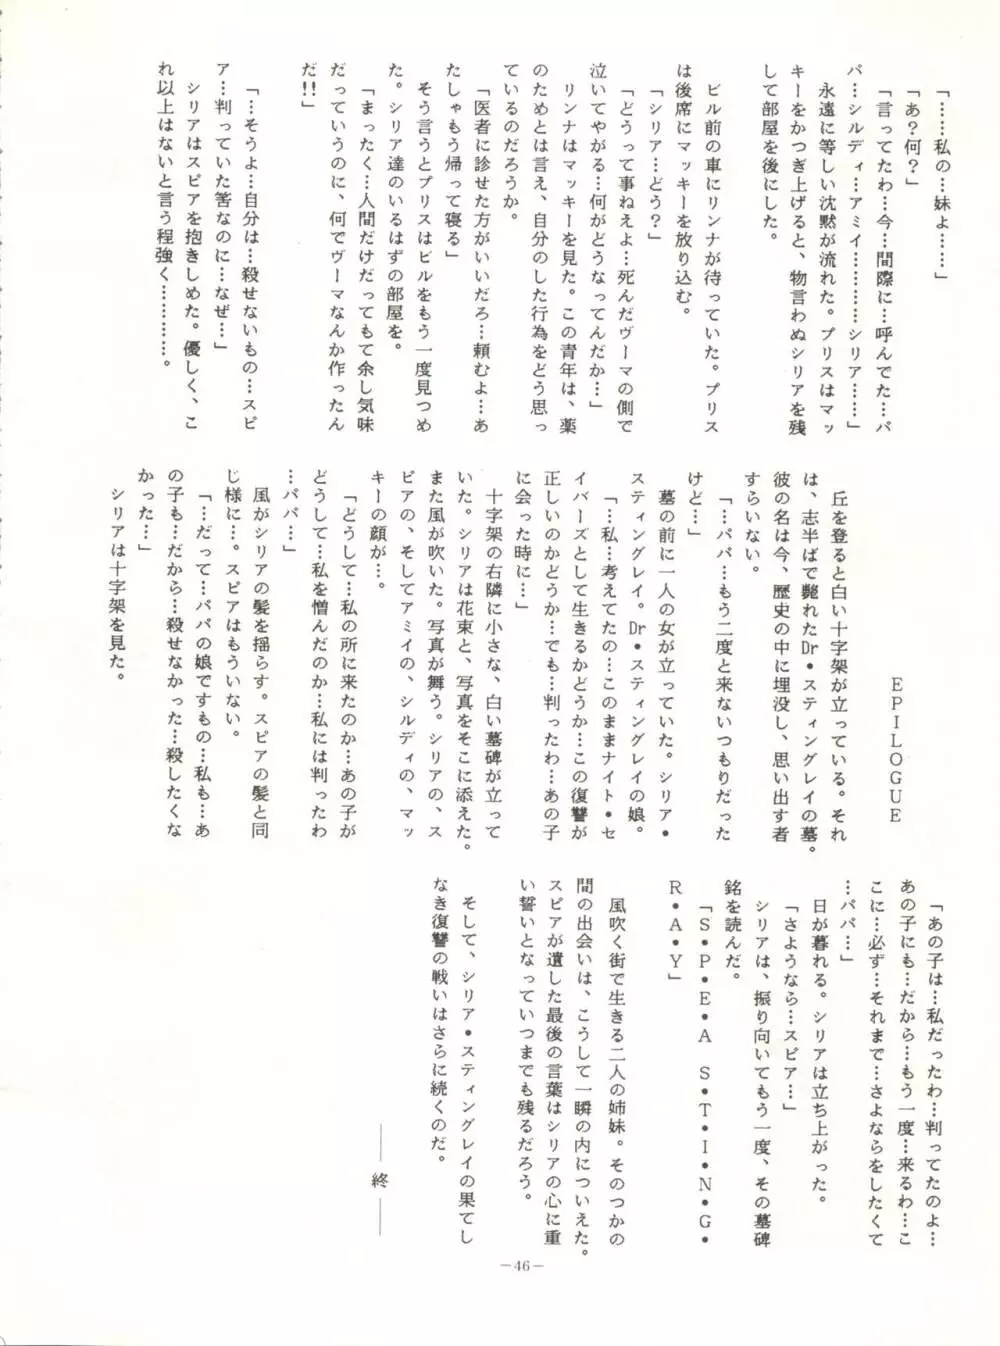 「……私の…妹よ……」
「あ？何？」
「言ってたわ…今…間際に…呼んでた…パ
パ…シルディ…アミイ…………シリア……」
　永遠に等しい沈黙が流れた。プリスはマッ
キーをかつぎ上げると、物言わぬシリアを残
して部屋を後にした。
　ビル前の車にリンナが待っていた。プリス
は後席にマッキーを放り込む。
「シリア…どう？」
「どうって事ねえよ…死んだヴーマの側で
泣いてやがる…何がどうなってんだか…」
　リンナはマッキーを見た。この青年は、薬
のためとは言え、自分のした行為をどう思っ
ているのだろうか。
「医者に診せた方がいいだろ…頼むよ…あ
たしゃもう帰って寝る」
　そう言うとプリスはビルをもう一度見つめ
た。シリア達のいるはずの部屋を。
「まったく…人間だけだってもて余し気味
だっていうのに、何でヴーマなんか作ったん
だ!!」
「…そうよ…自分は…殺せないもの…スピ
ア…判っていた筈なのに…なぜ…」
　シリアはスピアを抱きしめた。優しく、こ
れ以上はないと言う程強く…………。
EPILOGUE
　丘を登ると白い十字架が立っている。それ
は、志半ばで斃れたDr・スティングレイの墓。
彼の名は今、歴史の中に埋没し、思い出す者
すらいない。
「…パパ…もう二度と来ないつもりだった
けど…」
　墓の前に一人の女が立っていた。シリア・
スティングレイ。Dr・スティングレイの娘。
「…私…考えてたの…このままナイト・セ
イバーズとして生きるかどうか…この復讐が
正しいのかどうか…でも…判ったわ…あの子
に会った時に…」
　十字架の右隣に小さな、白い墓碑が立って
いた。シリアは花束と、写真をそこに添えた。
また風が吹いた。写真が舞う。シリアの、ス
ピアの、そしてアミイの、シルディの、マッ
キーの顔が…。
「どうして…私の所に来たのか…あの子が
どうして…私を憎んだのか…私には判ったわ
…パパ…」
　風がシリアの髪を揺らす。スピアの髪と同
じ様に…。スピアはもういない。
「…だって…パパの娘ですもの…私も…あ
の子も…だから…殺せなかった…殺したくな
かった…」
　シリアは十字架を見た。
「あの子は…私だったわ…判ってたのよ…
あの子にも…だから…もう一度…来るわ…こ
こに…必ず…それまで…さよならをしたくて
…パパ…」
　日が暮れる。シリアは立ち上がった。
「さようなら…スピア…」
　シリアは、振り向いてもう一度、その墓碑
銘を読んだ。
「S・P・E・A　S・T・I・N・G・
R・A・Y」
　風吹く街で生きる二人の姉妹。そのつかの
間の出会いは、こうして一瞬の内についえた。
スピアが遺した最後の言葉はシリアの心に重
い誓いとなっていつまでも残るだろう。
　そして、シリア・スティングレイの果てし
なき復讐の戦いはさらに続くのだ。
――　終　――
－46－